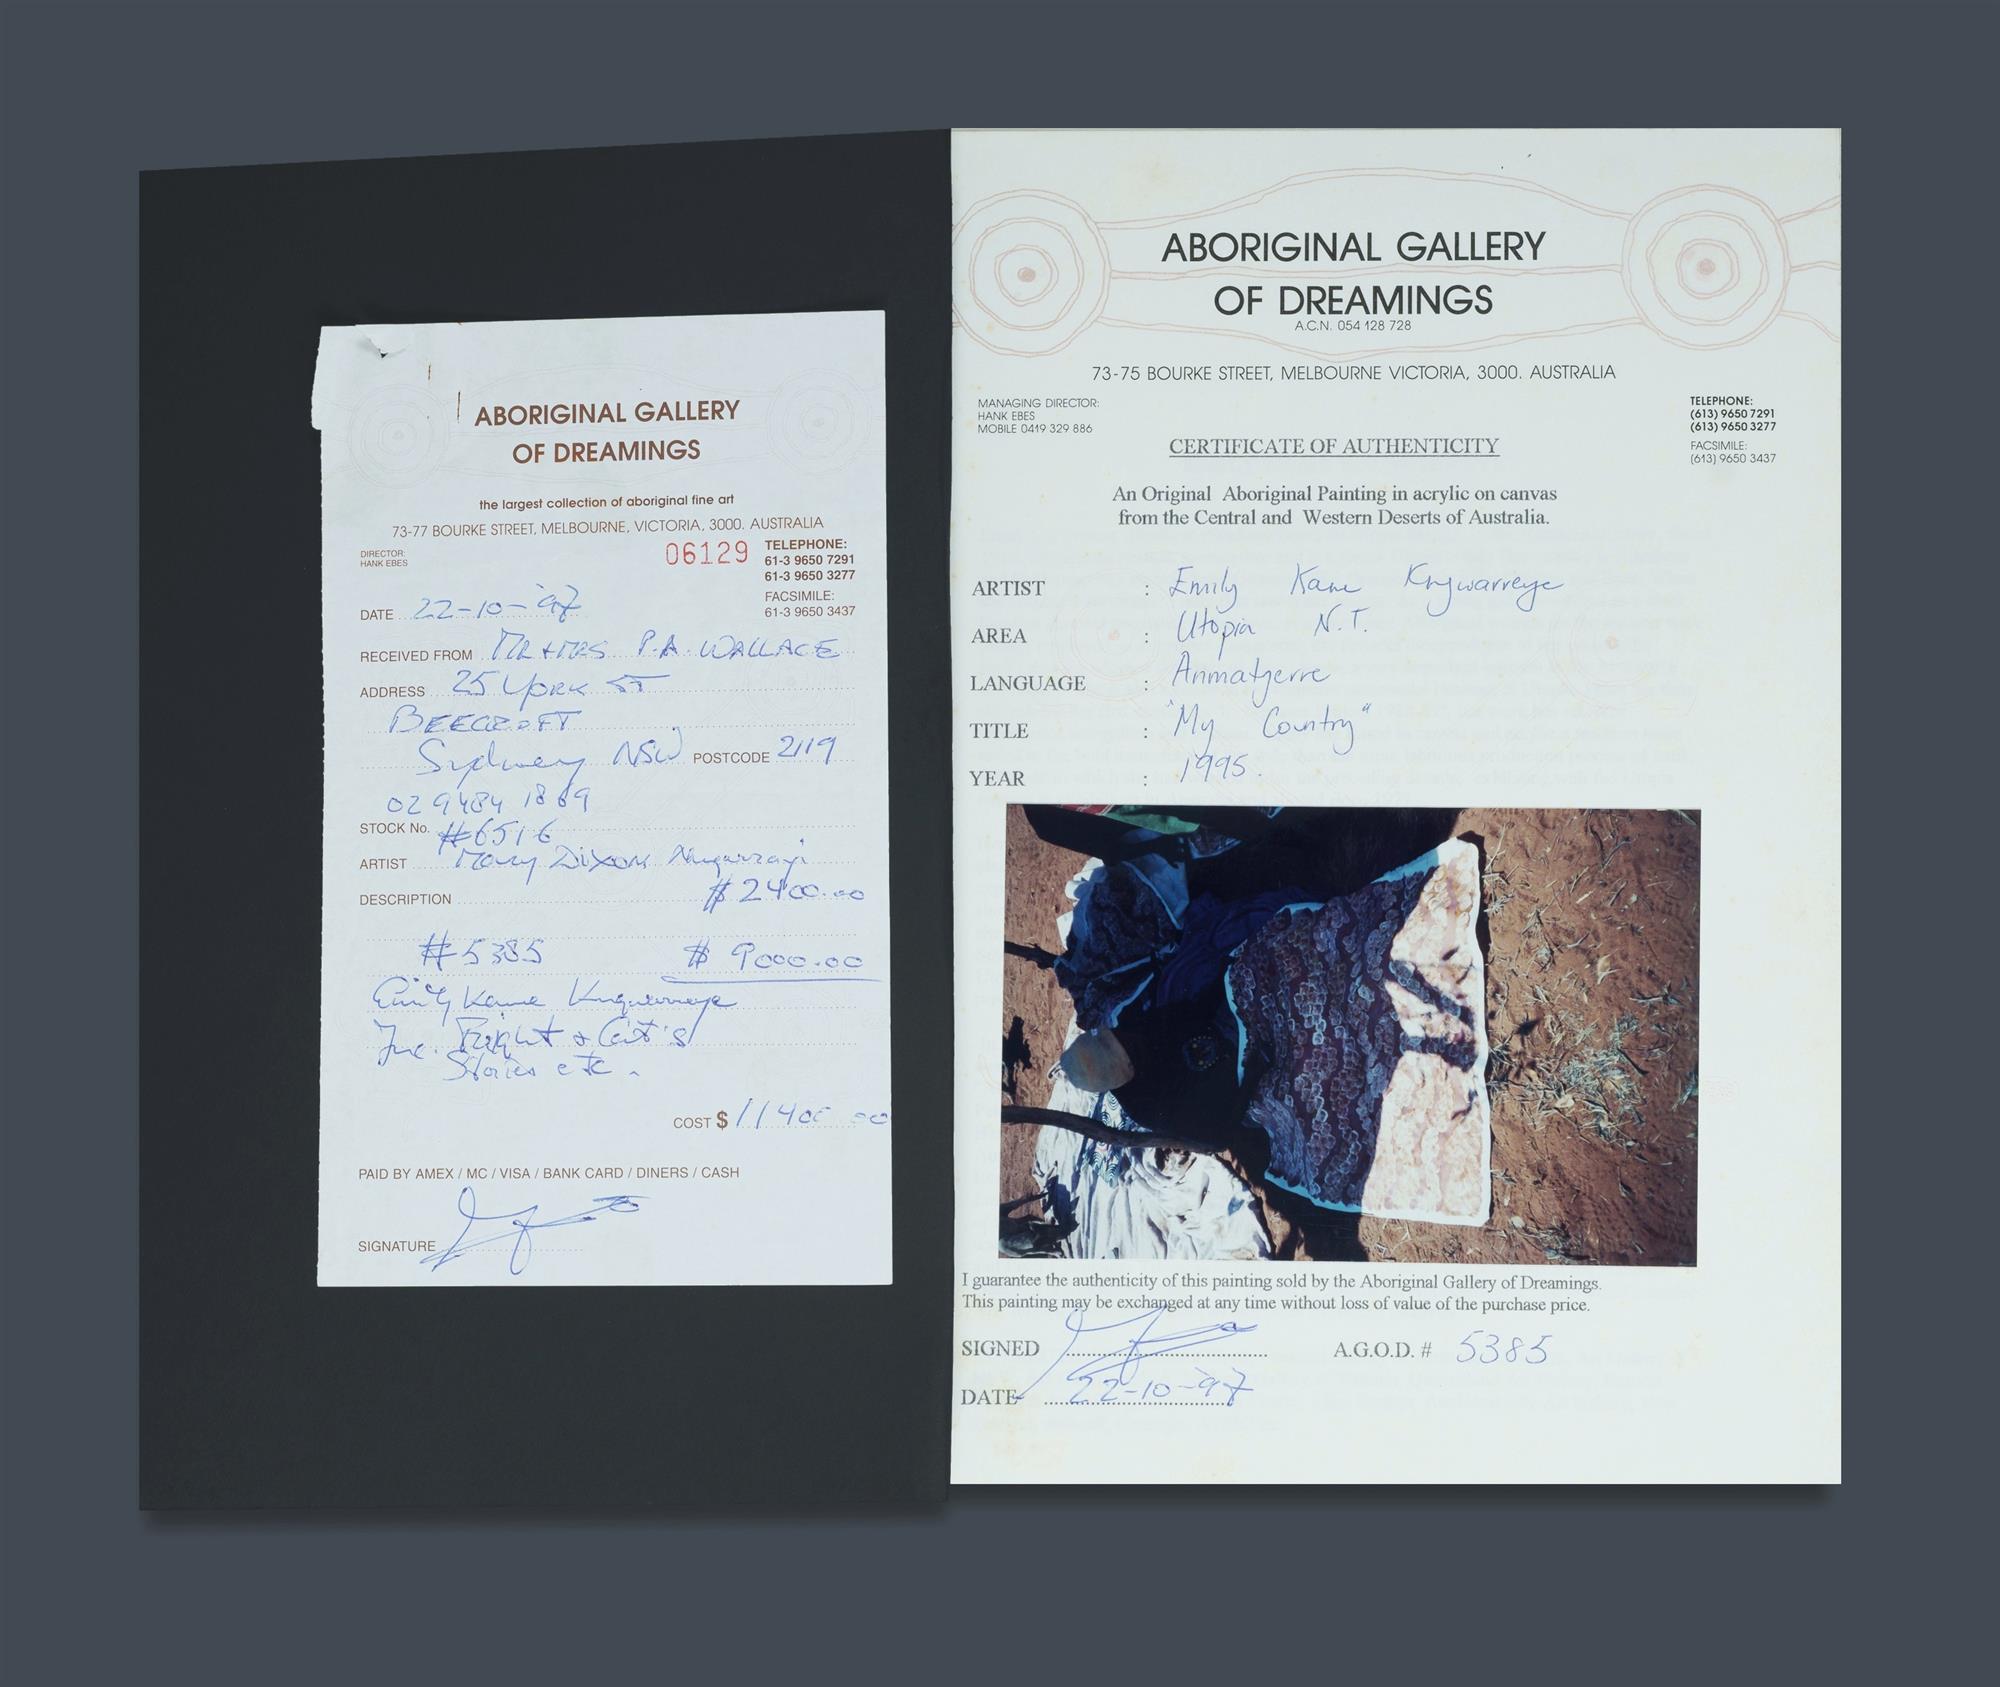 ABORIGINAL GALLERY
OF DREAMINGS
the largest collection of aboriginal fine art
73-77 BOURKE STREET, MELBOURNE, VICTORIA, 3000. AUSTRALIA
DIRECTOR:
HANK EBES
06129
TELEPHONE:
61-3 9650 7291
61-3 9650 3277
FACSIMILE:
61-3 9650 3437
DATE 22-10-'97
RECEIVED FROM MR + MRS P.A. WALLACE
ADDRESS 25 YORK ST
BEECROFT
Sydney NSW POSTCODE 2119
02 9484 1869
STOCK No. #6516
ARTIST Mary Dixon
DESCRIPTION $2400.00
#5385 $ 9000.00
Emily Kame Kngwarreye
Inc. Freight & Cert's
Stories etc.
COST $ 11400 00
PAID BY AMEX / MC / VISA / BANK CARD / DINERS / CASH
SIGNATURE
ABORIGINAL GALLERY
OF DREAMINGS
A.C.N. 054 128 728
73-75 BOURKE STREET, MELBOURNE VICTORIA, 3000. AUSTRALIA
MANAGING DIRECTOR:
HANK EBES
MOBILE 0419 329 886
TELEPHONE:
(613) 9650 7291
(613) 9650 3277
FACSIMILE:
(613) 9650 3437
CERTIFICATE OF AUTHENTICITY
An Original Aboriginal Painting in acrylic on canvas
from the Central and Western Deserts of Australia.
ARTIST : Emily Kame Kngwarreye
AREA : Utopia N.T.
LANGUAGE : Anmatyerre
TITLE : "My Country"
YEAR : 1995.
I guarantee the authenticity of this painting sold by the Aboriginal Gallery of Dreamings.
This painting may be exchanged at any time without loss of value of the purchase price.
SIGNED A.G.O.D. # 5385
DATE 22-10-'97